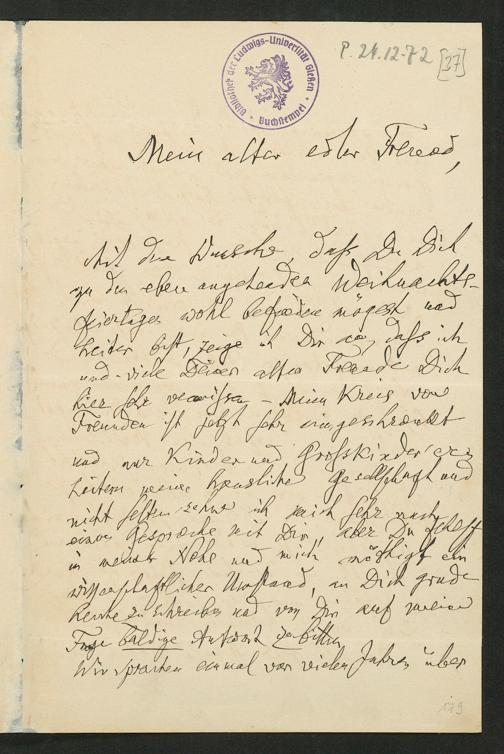 P. 24.12.72 [27]
Bibliothek der Ludwigs-Universität Gießen
Buchstempel
Mein alter edler Freund,
Mit dem Wunsche, daß Du Dich
zu den eben angehenden Weihnachts-
feiertagen wohl befinden mögest und
heiter bist, zeige ich Dir an, daß ich
und viele Deiner alten Freunde Dich
hier sehr vermissen – Mein Kreis von
Freunden ist jetzt sehr eingeschränkt
und nur Kinder und Grosskinder er-
heitern meine häusliche Gesellschaft und
nicht selten sehne ich mich sehr nach
einem Gespräche mit Dir, aber Du
in meiner Nähe und mich nöthigt ein
wissenschaftlicher Umstand, an Dich grade
heute zu schreiben und von Dir auf meine
Frage baldige Antwort zu bitten
Wir sprachen einmal vor vielen Jahren über
179